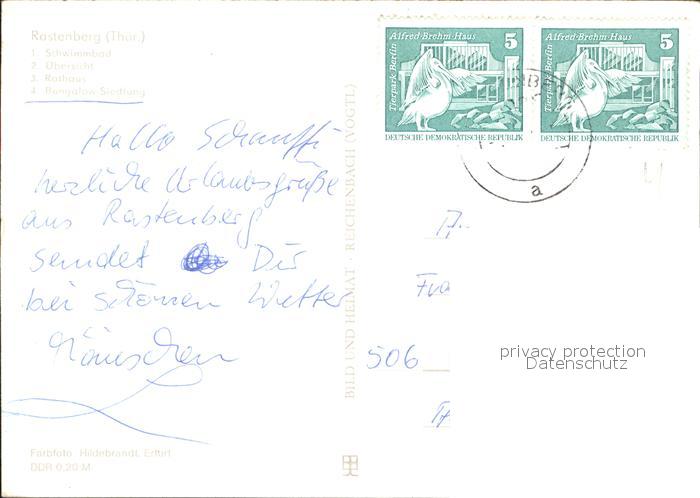 Rastenberg (Thür.)
1. Schwimmbad
2. Übersicht
3. Rathaus
4. Bungalow-Siedlung
Hallo
herzliche Urlaubsgrüße
aus Rastenberg
sendet Dir
bei schönem Wetter
BILD UND HEIMAT · REICHENBACH (VOGTL)
Alfred-Brehm-Haus 5
Tierpark Berlin
DEUTSCHE DEMOKRATISCHE REPUBLIK
Alfred-Brehm-Haus 5
Tierpark Berlin
DEUTSCHE DEMOKRATISCHE REPUBLIK
a
506
privacy protection
Datenschutz
Farbfoto: Hildebrandt, Erfurt
DDR 0,20 M